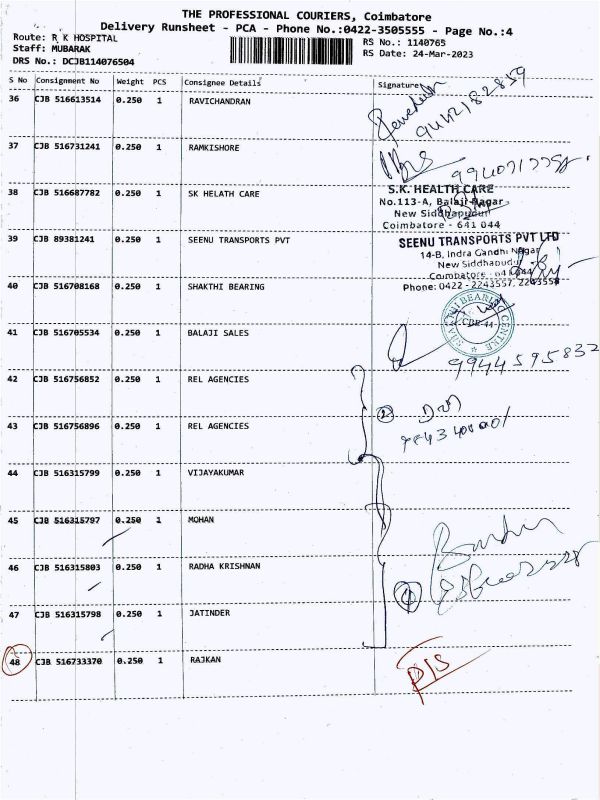 THE PROFESSIONAL COURIERS, Coimbatore
Delivery Runsheet - PCA - Phone No.:0422-3505555 - Page No.:4
Route: R K HOSPITAL
RS No.: 1140765
Staff: MUBARAK
RS Date: 24-Mar-2023
DRS No.: DCJB114076504
S No Consignment No Weight PCS Consignee Details Signature
36 CJB 516613514 0.250 1 RAVICHANDRAN
9442182859
37 CJB 516731241 0.250 1 RAMKISHORE
38 CJB 516687782 0.250 1 SK HELATH CARE
S.K. HEALTH CARE
No.113-A, Balaji Nagar
New Siddhapudur
Coimbatore - 641 044
39 CJB 89381241 0.250 1 SEENU TRANSPORTS PVT
SEENU TRANSPORTS PVT LTD
14-B, Indra Gandhi Nagar
New Siddhapudur
Coimbatore
Phone: 0422 - 2243557, 2243558
40 CJB 516708168 0.250 1 SHAKTHI BEARING
SHAKTHI BEARING CENTRE
CBE-44
41 CJB 516705534 0.250 1 BALAJI SALES
9944595832
42 CJB 516756852 0.250 1 REL AGENCIES
2
43 CJB 516756896 0.250 1 REL AGENCIES
44 CJB 516315799 0.250 1 VIJAYAKUMAR
45 CJB 516315797 0.250 1 MOHAN
46 CJB 516315803 0.250 1 RADHA KRISHNAN
47 CJB 516315798 0.250 1 JATINDER
48 CJB 516733370 0.250 1 RAJKAN